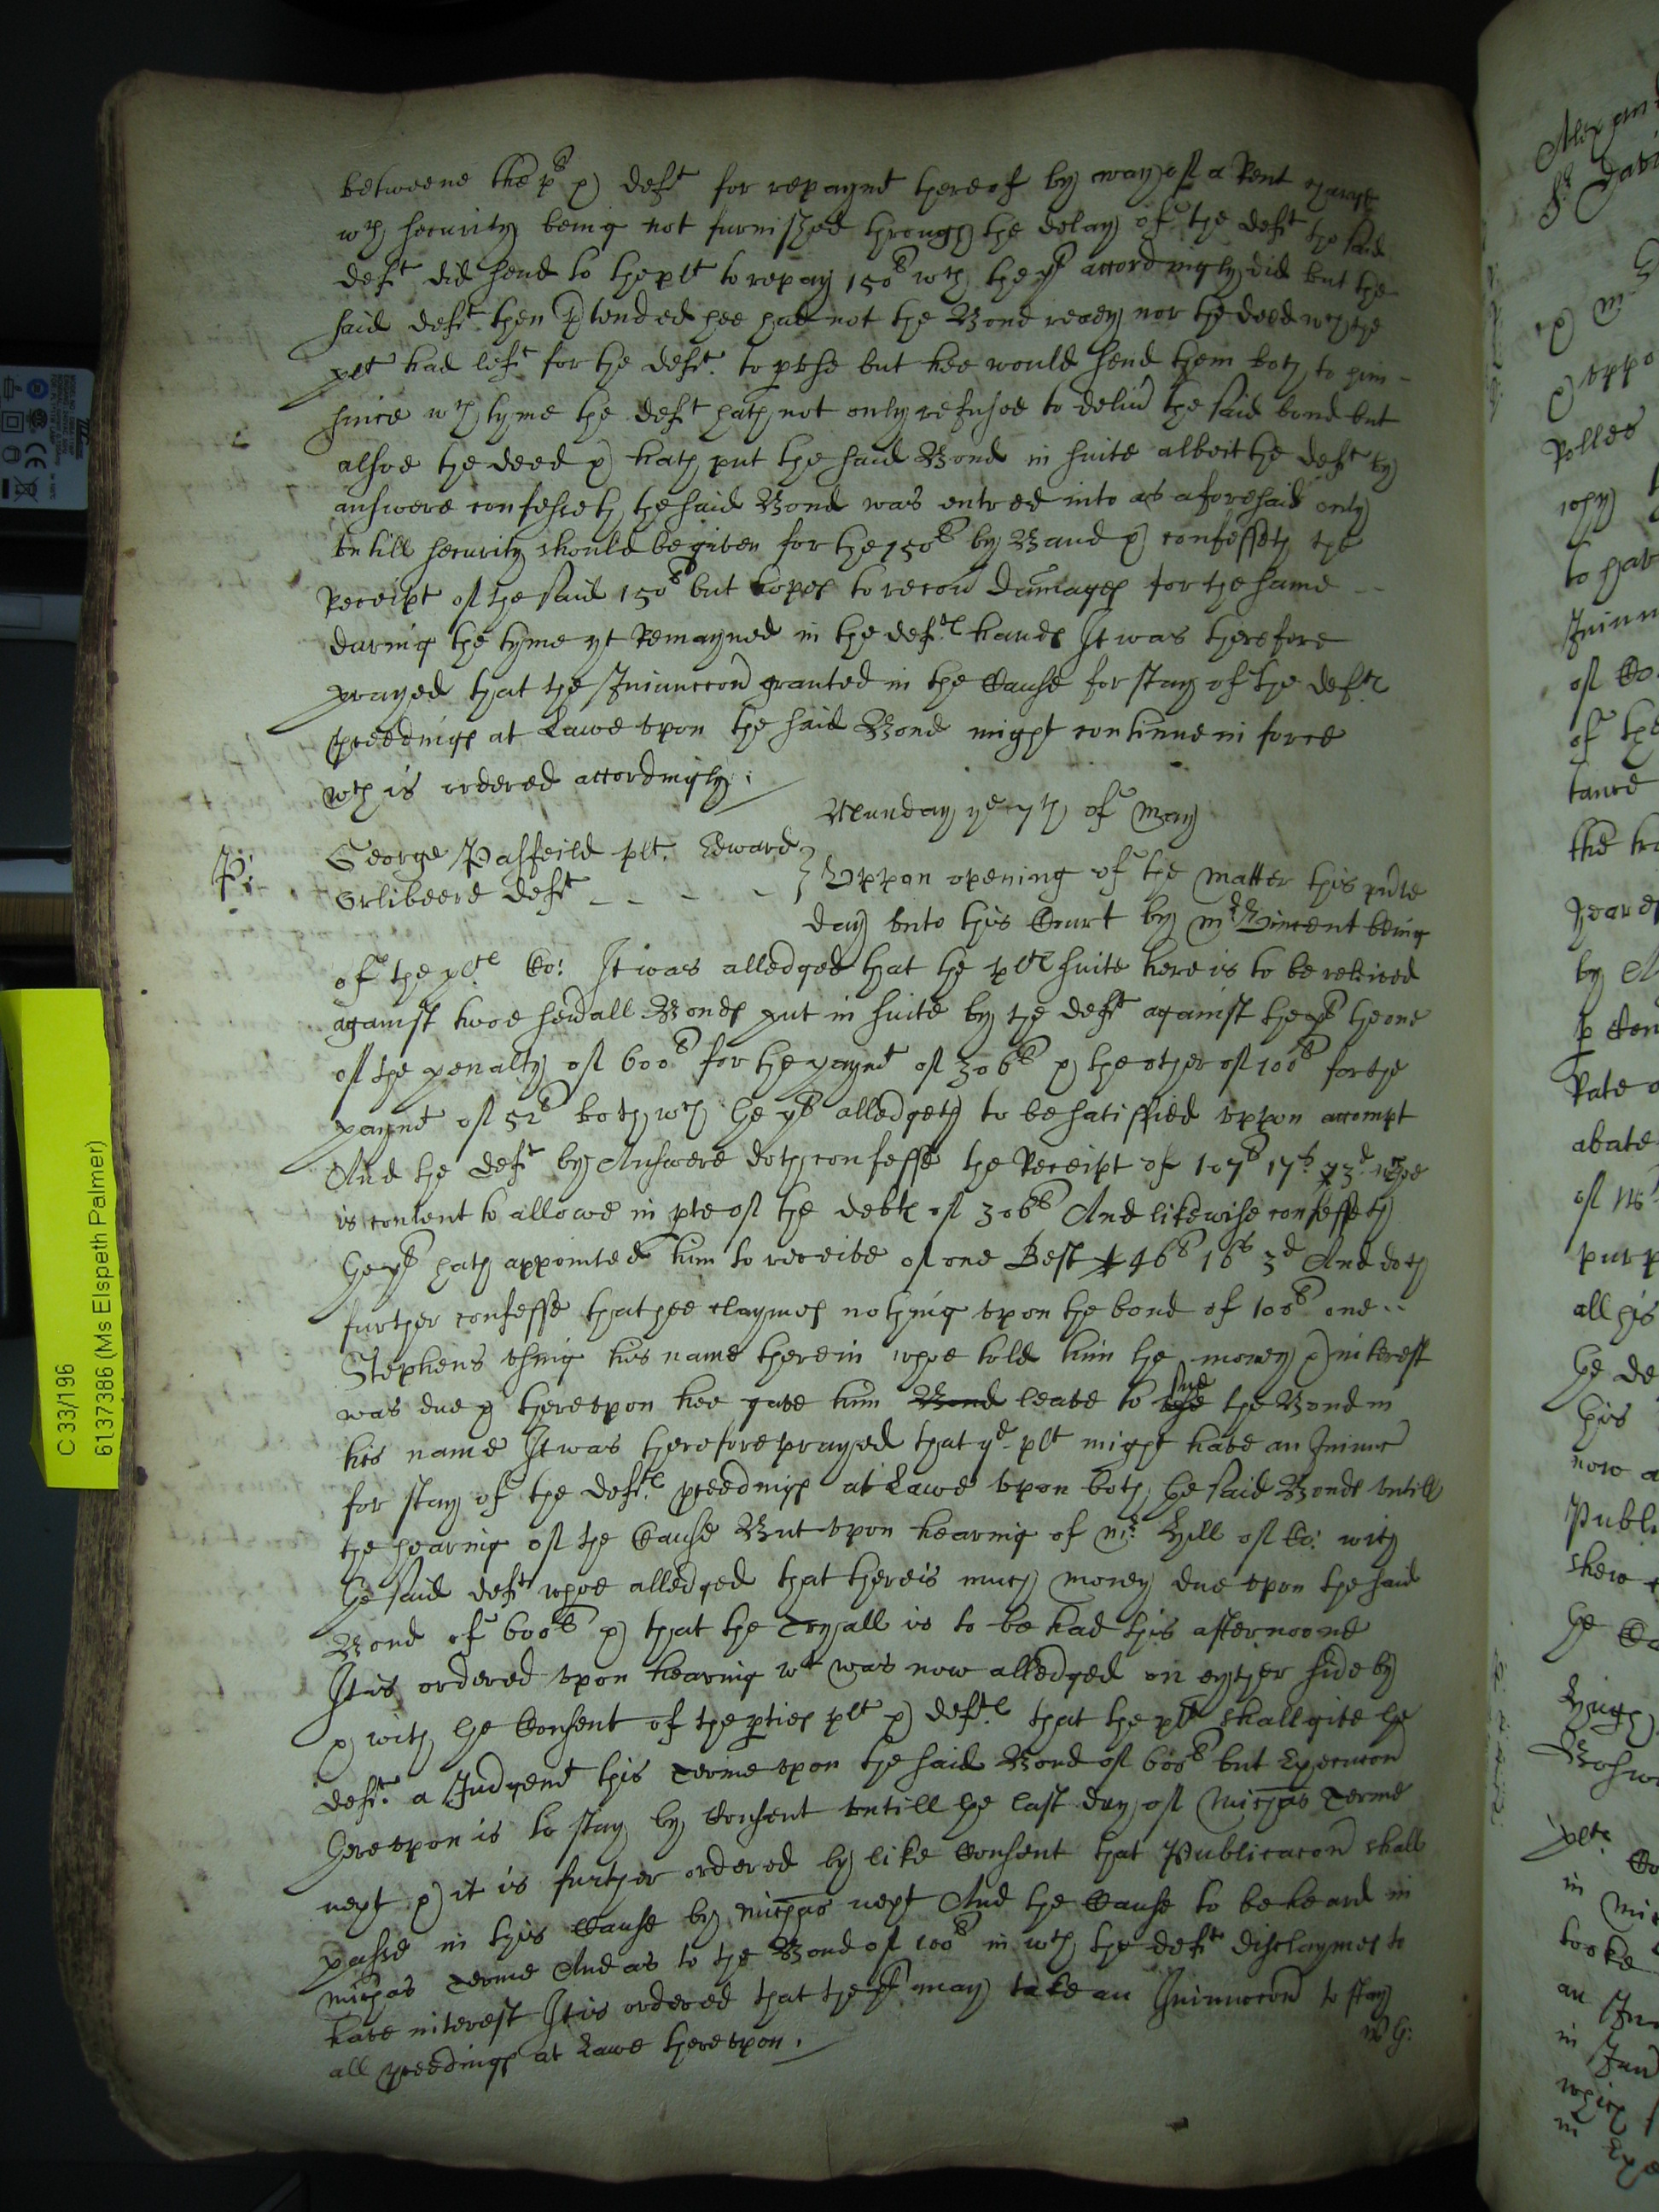 betweene the pt & deft for repaymt thereof by way of a Rent charge
wch security being not furnished through the delay of the deft the said
deft did send to the plt to repay 150li wch the pt accordingly did but the
said deft then ptended hee had not the Bond ready nor the deed wch the
plt had left for the deft. to pvse but hee would send them both to him -
since wch tyme the deft hath not only refused to deliu the said bond but
alsoe the deed & hath put the said Bond in suite albeit the deft by
answere confesseth the said Bond was entred into as aforesaid only
vntill security should be given for the 150li by Baud & confesseth the
Receipt of the said 150li but hopes to recou damages for the same --
during the tyme yt Remayned in the defts hands It was therefore
prayed that the Iniunccon granted in the Cause for stay of the defts
pceedings at Lawe vpon the said Bond might continue in force
wch is ordered accordingly.
Munday ye 7th of May
Pi
George Passfeild plt. Edward
Orlibeere deft - - - -
Vppon opening of the matter this pnte
day vnto this Court by mr Vincent being
of the plts Co: It was alledged that the plts suite here is to be releived
against twoe seuall Bonds put in suite by the deft against the pt the one
of the penalty of 600li for the paymt of 306li & the other of 100li for the
paymt of 52li both wch the pt alledgeth to be satisfied vppon accompt
And the deft by Answere doth confesse the Receipt of 107li 17s 3d
is content to allowe in pte of the debt of 306li And likewise confesseth
the pt hath appointed him to receive of one Best 46li 16s 3d And doth
further confesse that hee claymes nothing vpon the bond of 100li one --
Stephens vsing his name therein whoe told him the money & interest
was due & therevpon hee gave him Bond leave to vse sue the Bond in
his name It was therefore prayed that ye plt might have an Iniunc
for stay of the defts pceedings at Lawe vpon both the said Bonds vntill
the hearing of the Cause But vpon hearing of mr Hill of Co: with
the said deft whoe alledged that there is much money due vpon the said
Bond of 600li & that the Tryall is to be had this afternoone
It is ordered vpon hearing wt was now alledged on eyther side by
& with the Consent of the pties plt & defts that the plt shall give the
deft. a Iudgemt this Terme vpon the said Bond of 600li but Execucon
therevpon is to stay by Consent vntill the last day of Michas Terme
next & it is further ordered by like Consent that Publicacon shall
passe in this Cause by michas next And the Cause to be heard in
michas Terme And as to the Bond of 100li in wch the deft disclaymes to
have interest It is ordered that the pt may take an Iniunccon to stay
all pceedings at Lawe therevpon.
C 33/196
6137386 (Ms Elspeth Palmer)